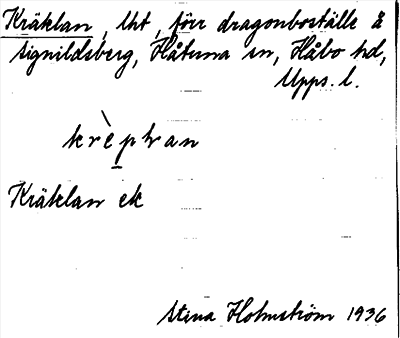 Kräklan, lht, förr dragonboställe å
Signildsberg, Håtuna sn, Håbo hd,
Upps. l.
krä̀klan
Kräklan ek
Stina Holmström 1936